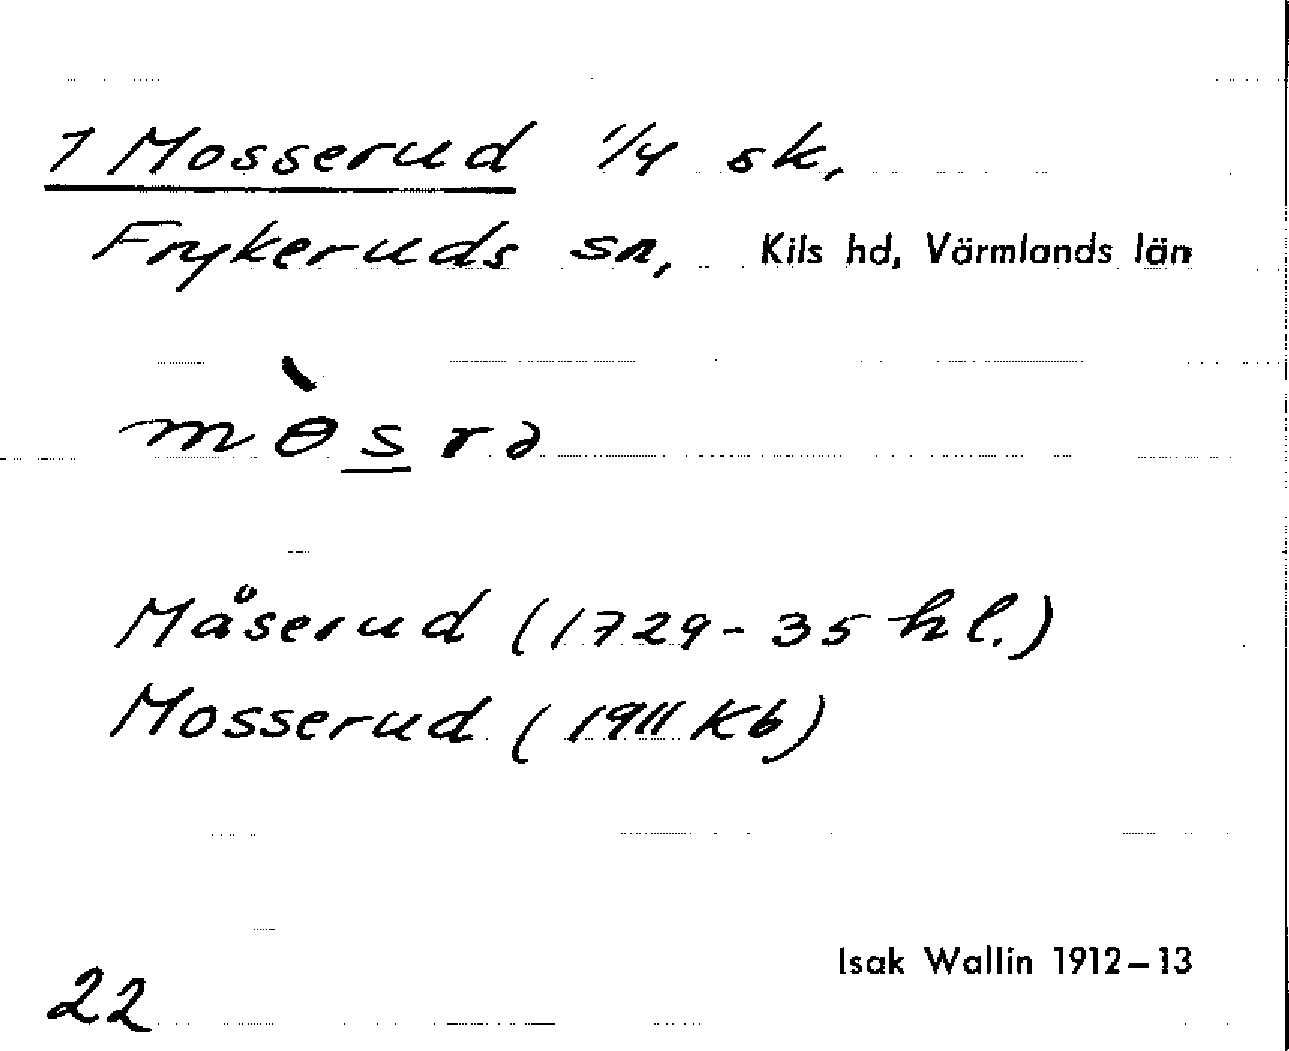 1 Mosserud 1/4 sk,
Frykeruds sn, Kils hd, Värmlands län
mɵ̀srə
Måserud (1729-35 hl.)
Mosserud (1911 Kb)
Isak Wallin 1912–13
22